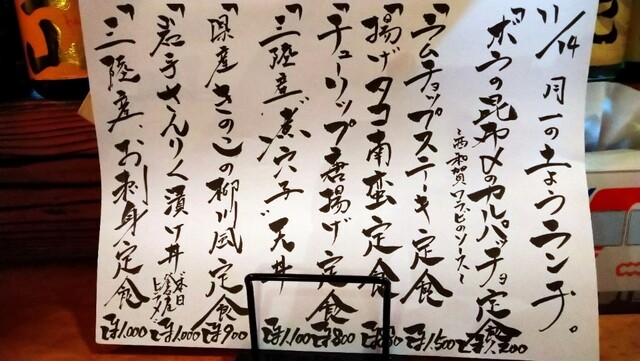 11/14 月一の土ようランチ。
「ボラの昆布〆のカルパッチョ定食
~西和賀ワラビのソース~
「ラムチョップステーキ定食 1,500
「揚げタコ南蛮定食
「チューリップ唐揚げ定食 800
「三陸産煮穴子」天丼 1,100
「県産きのこの柳川風定食 900
「岩手さんりく漬け丼 本日 ヒラメ 1,000
「三陸産、お刺身定食 1,000